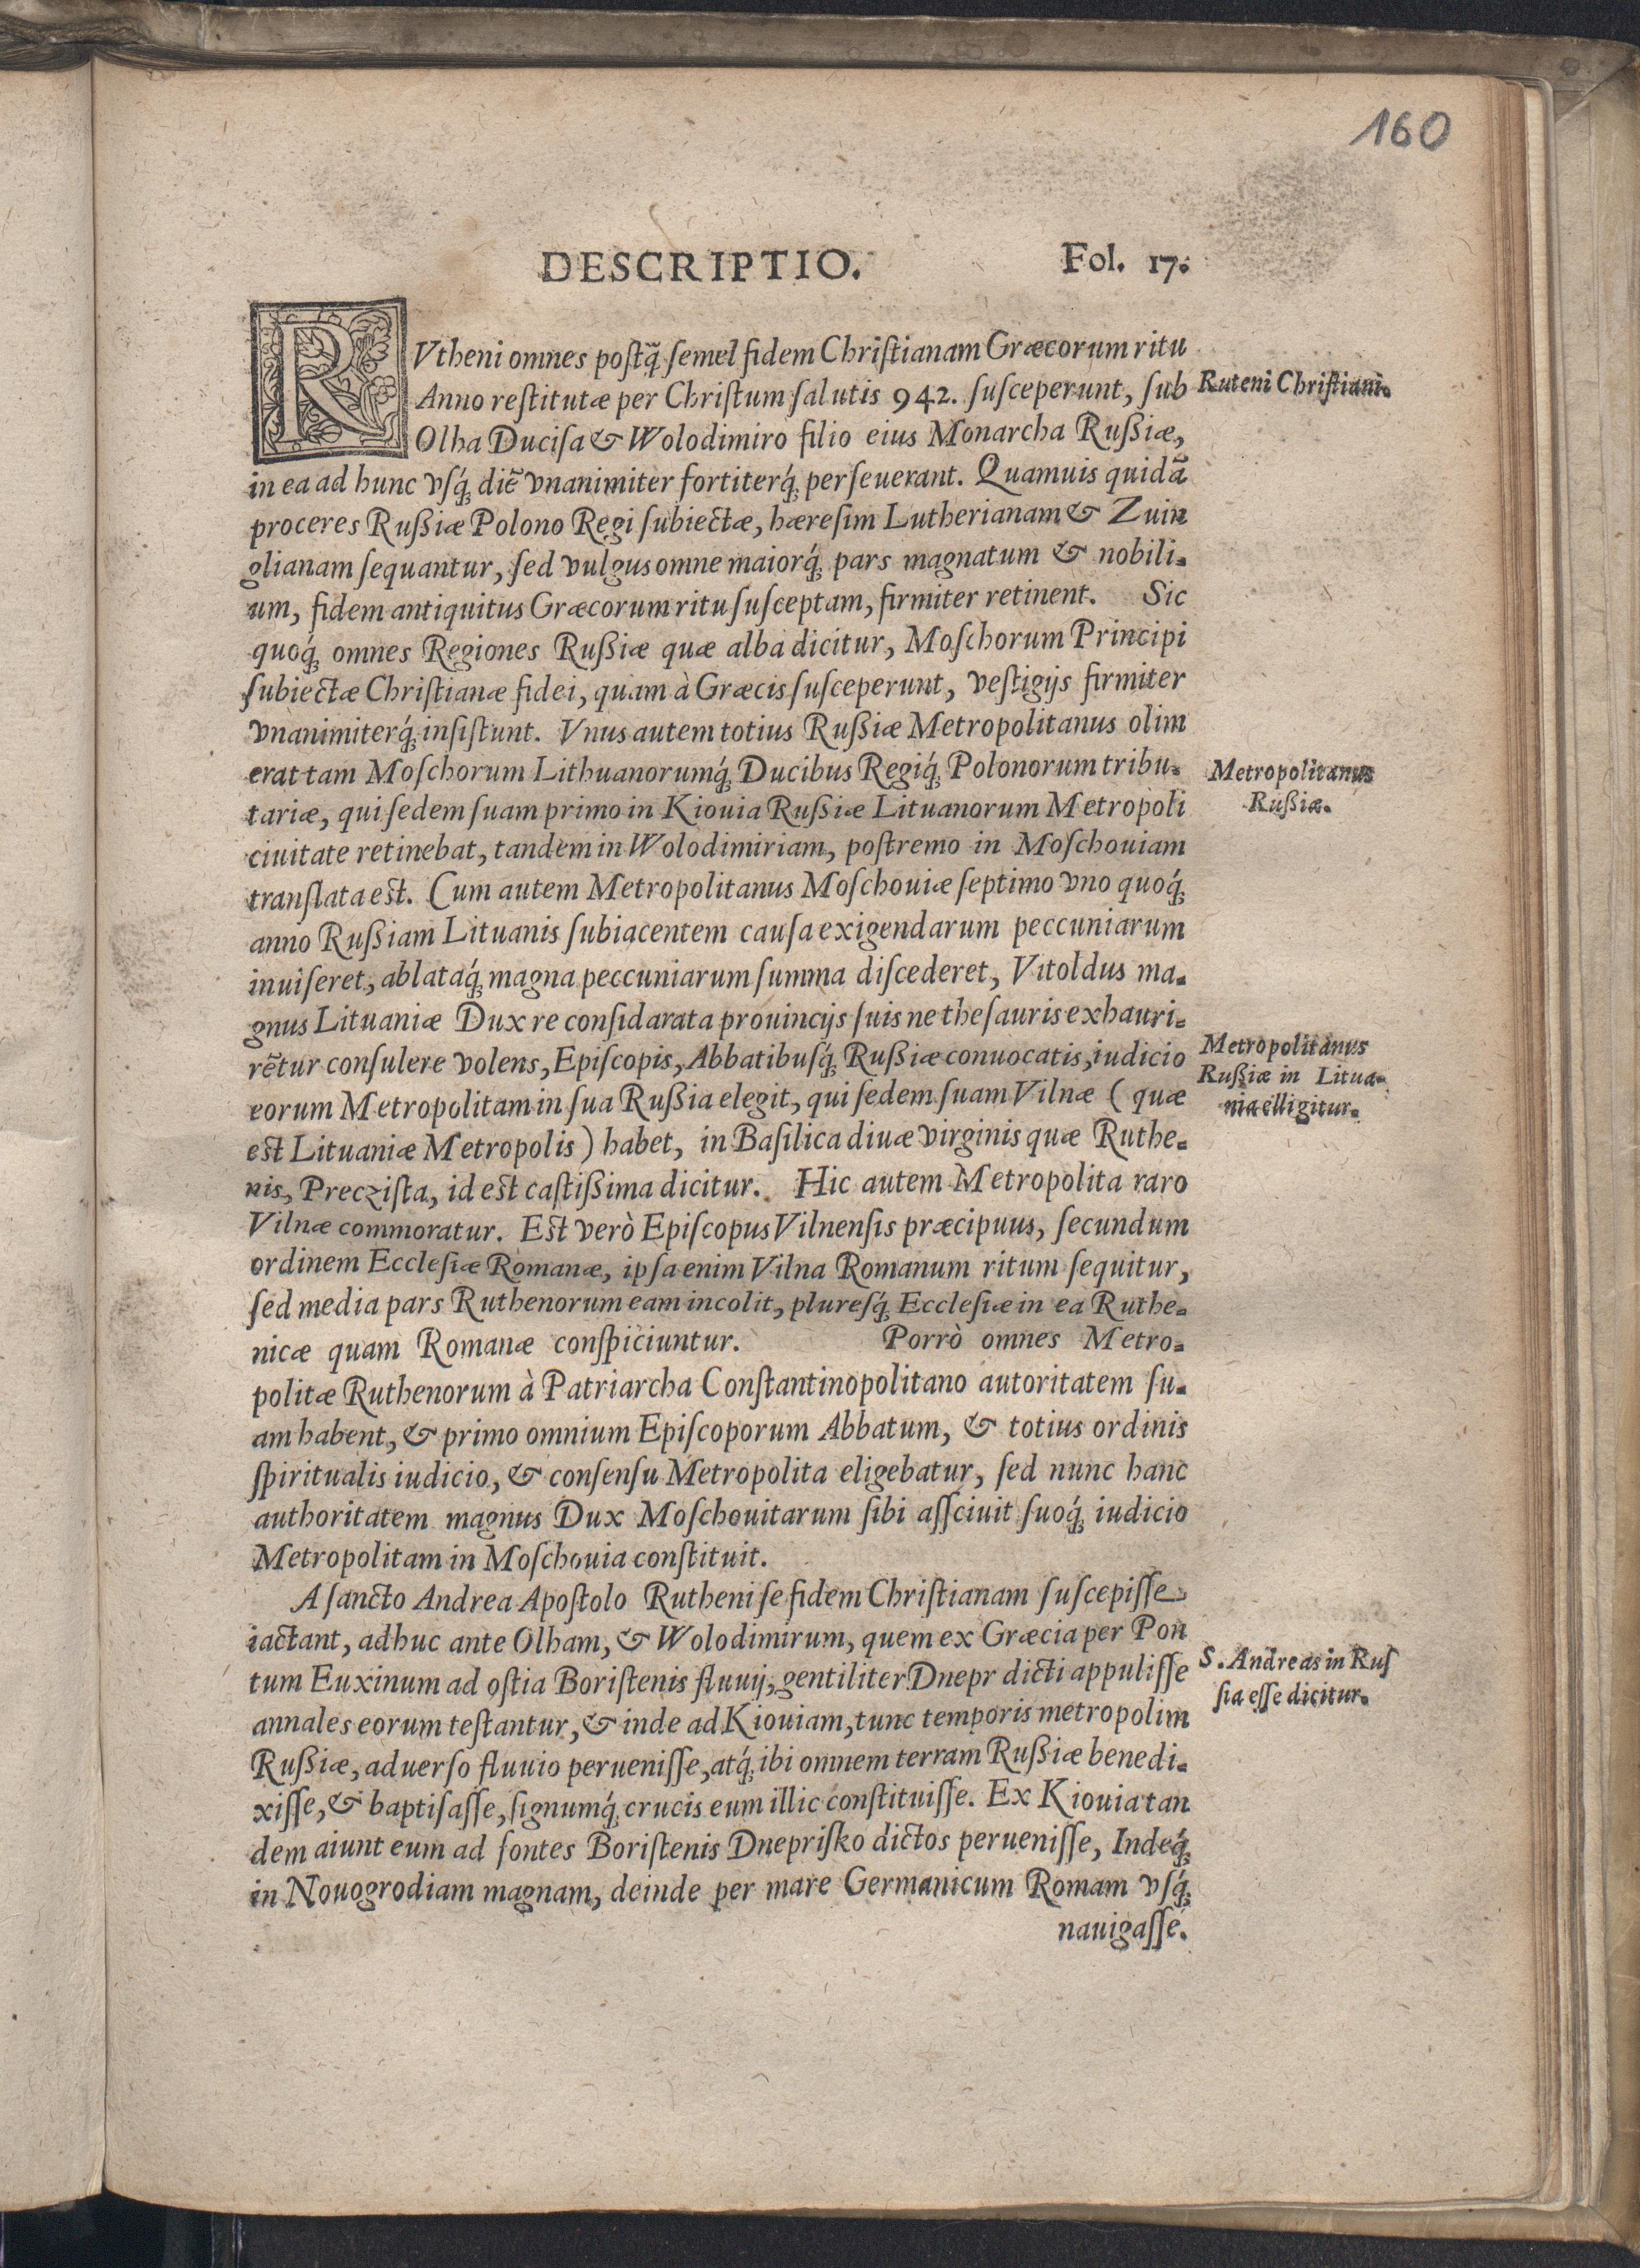 160
DESCRIPTIO. Fol. 17.
RVtheni omnes postq̃ semel fidem Christianam Græcorum ritu
Anno restitutæ per Christum salutis 942. susceperunt, sub
Ruteni Christiani.
Olha Ducisa & Wolodimiro filio eius Monarcha Rußiæ,
in ea ad hunc vsq́; diẽ vnanimiter fortiterq́; perseuerant. Quamuis quidã
proceres Rußiæ Polono Regi subiectæ, hæresim Lutherianam & Zuin
glianam sequantur, sed vulgus omne maiorq́; pars magnatum & nobili-
um, fidem antiquitus Græcorum ritu susceptam, firmiter retinent. Sic
quoq́; omnes Regiones Rußiæ quæ alba dicitur, Moschorum Principi
subiectæ Christianæ fidei, quam à Græcis susceperunt, vestigijs firmiter
vnanimiterq́; insistunt. Vnus autem totius Rußiæ Metropolitanus olim
erat tam Moschorum Lithuanorumq́; Ducibus Regiq́; Polonorum tribu-
Metropolitanus
Rußiæ.
tariæ, qui sedem suam primo in Kiouia Rußiæ Lituanorum Metropoli
ciuitate retinebat, tandem in Wolodimiriam, postremo in Moschouiam
translata est. Cum autem Metropolitanus Moschouiæ septimo vno quoq́;
anno Rußiam Lituanis subiacentem causa exigendarum peccuniarum
inuiseret, ablataq́; magna peccuniarum summa discederet, Vitoldus ma-
gnus Lituaniæ Dux re considarata prouincijs suis ne thesauris exhauri-
rẽtur consulere volens, Episcopis, Abbatibusq́; Rußiæ conuocatis, iudicio
Metropolitanus
Rußiæ in Litua-
nia elligitur.
eorum Metropolitam in sua Rußia elegit, qui sedem suam Vilnæ ( quæ
est Lituaniæ Metropolis ) habet, in Basilica diuæ virginis quæ Ruthe-
nis, Preczista, id est castißima dicitur. Hic autem Metropolita raro
Vilnæ commoratur. Est verò Episcopus Vilnensis præcipuus, secundum
ordinem Ecclesiæ Romanæ, ipsa enim Vilna Romanum ritum sequitur,
sed media pars Ruthenorum eam incolit, pluresq́; Ecclesiæ in ea Ruthe-
nicæ quam Romanæ conspiciuntur. Porrò omnes Metro-
politæ Ruthenorum à Patriarcha Constantinopolitano autoritatem su-
am habent, & primo omnium Episcoporum Abbatum, & totius ordinis
spiritualis iudicio, & consensu Metropolita eligebatur, sed nunc hanc
authoritatem magnus Dux Moschouitarum sibi assciuit suoq́; iudicio
Metropolitam in Moschouia constituit.
A sancto Andrea Apostolo Rutheni se fidem Christianam suscepisse
iactant, adhuc ante Olham, & Wolodimirum, quem ex Græcia per Pon
tum Euxinum ad ostia Boristenis fluuij, gentiliter Dnepr dicti appulisse
S. Andreas in Rus
sia esse dicitur.
annales eorum testantur, & inde ad Kiouiam, tunc temporis metropolim
Rußiæ, aduerso fluuio peruenisse, atq́; ibi omnem terram Rußiæ benedi-
xisse, & baptisasse, signumq́; crucis eum illic constituisse. Ex Kiouia tan
dem aiunt eum ad fontes Boristenis Dneprisko dictos peruenisse, Indeq́;
in Nouogrodiam magnam, deinde per mare Germanicum Romam vsq́;
nauigasse.